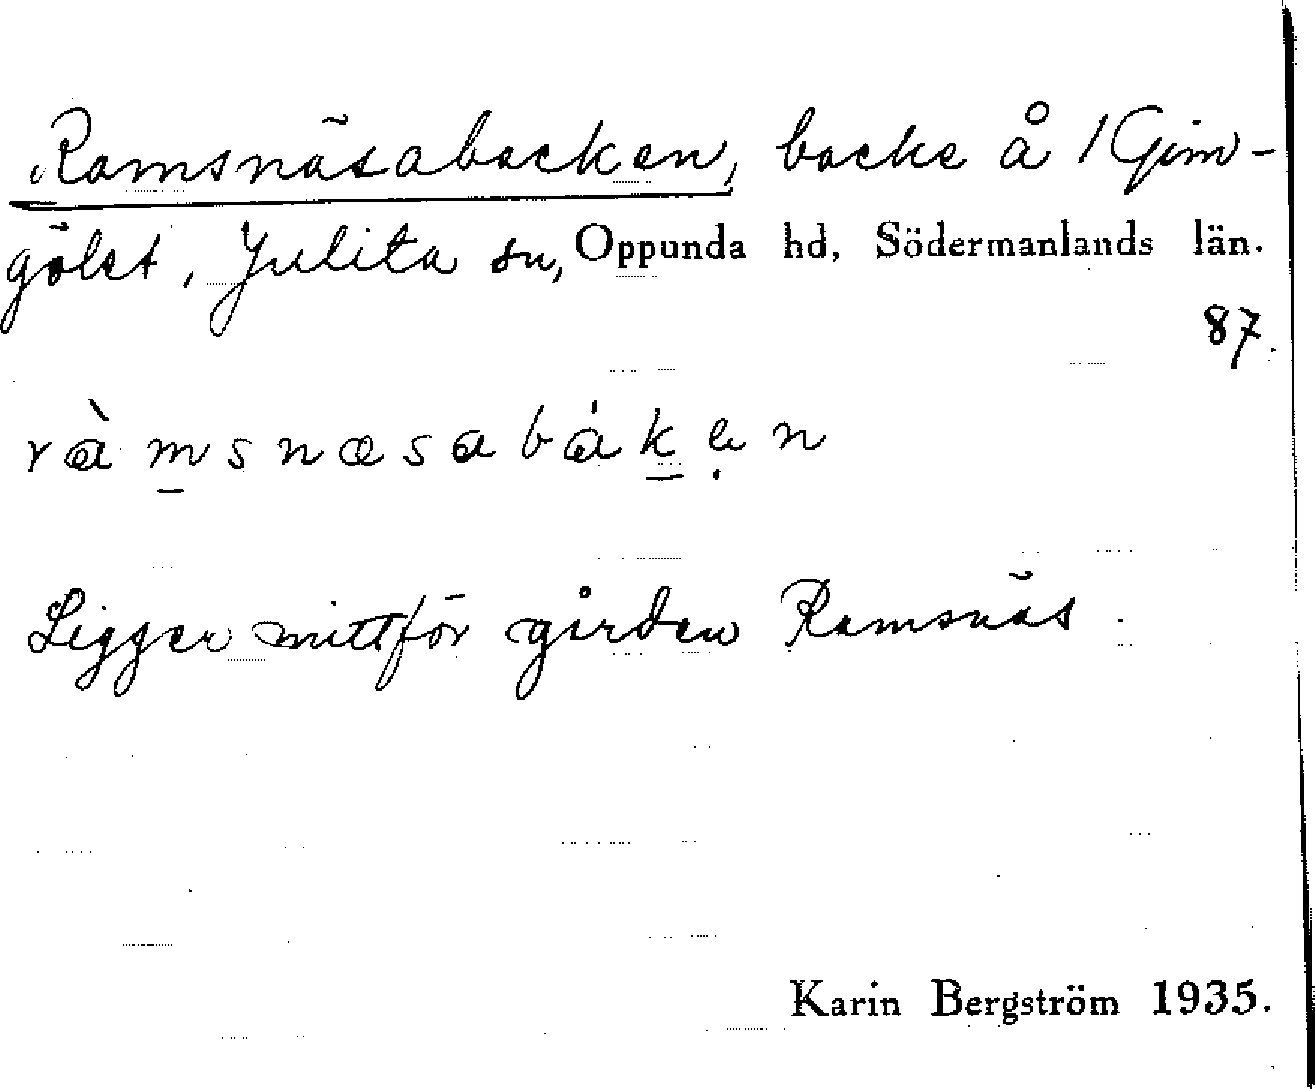 Ramsnäsabacken, backe å 1 Gim-
gölet, Julita sn, Oppunda hd, Södermanlands län.
87.
ràm̠snæsabák̠ẹn
Ligger mittför gården Ramsnäs.
Karin Bergström 1935.